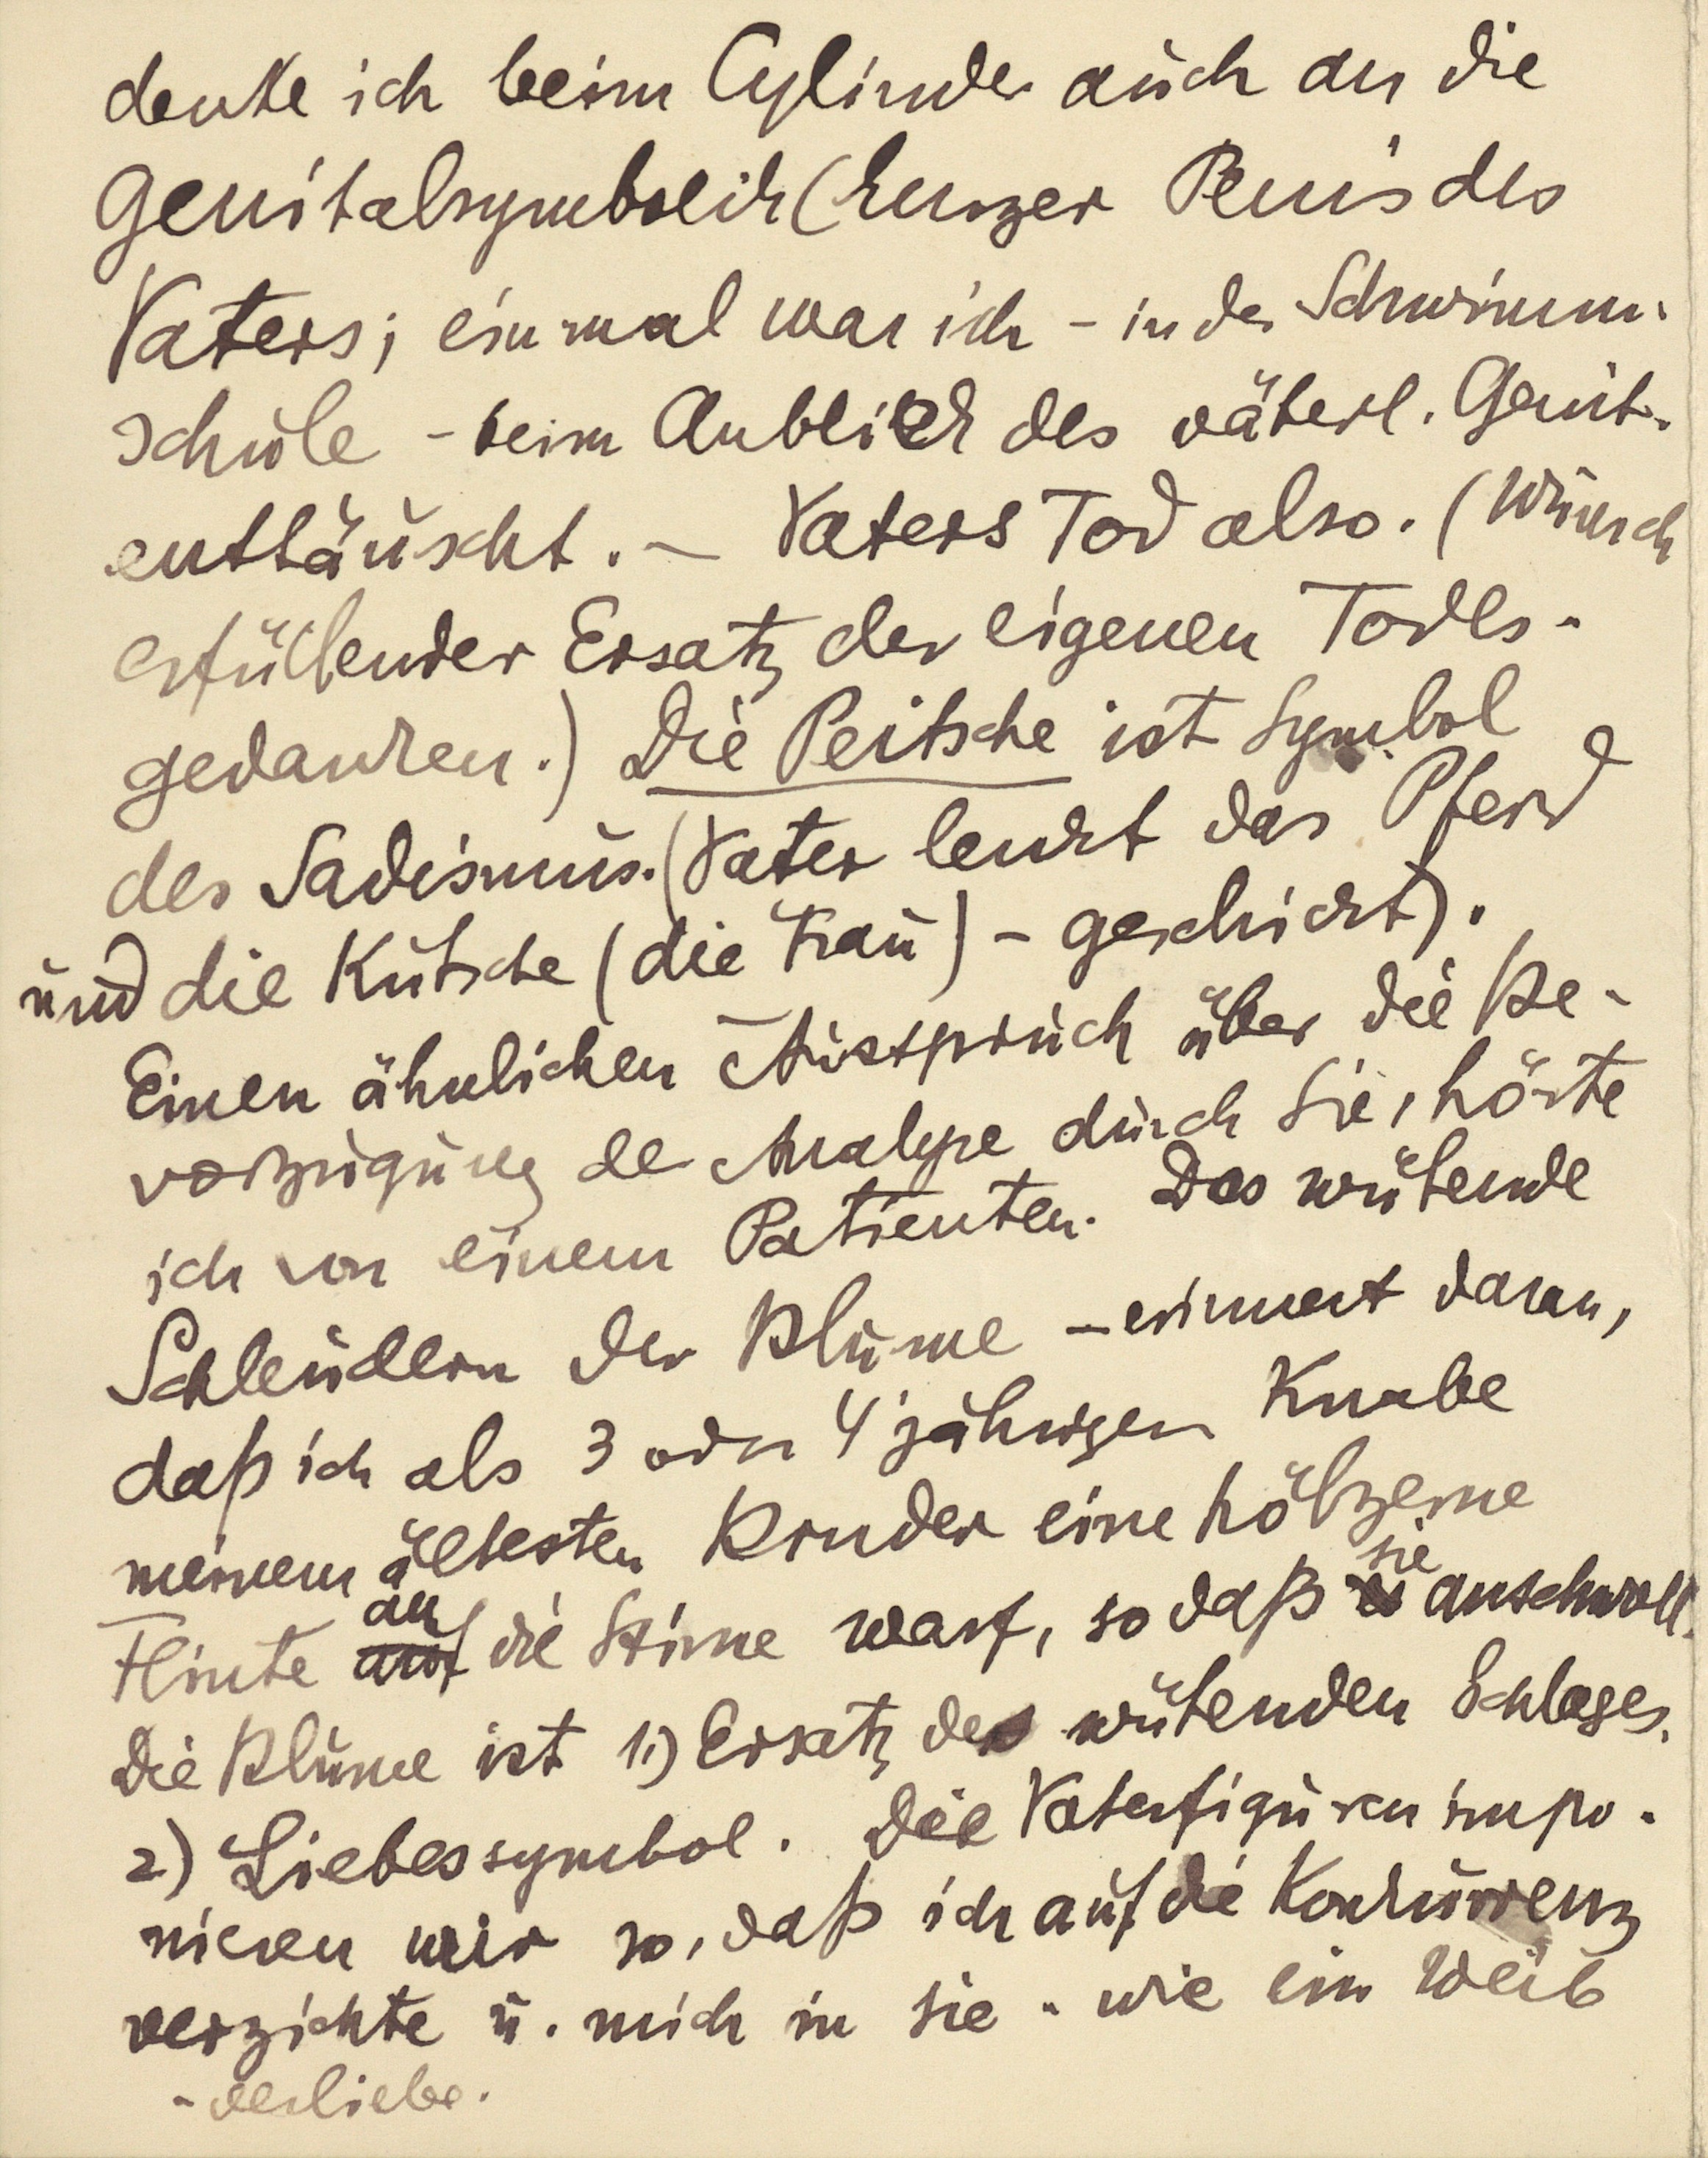 denke ich beim Cylinder auch an die
Genitalsymbolik (kurzer Penis des
Vaters; einmal war ich – in der Schwimm-
schule – beim Anblick des väterl. Genit.
enttäuscht. – Vaters Tod also. (Wunsch
erfüllender Ersatz der eigenen Todes-
gedanken.) Die Peitsche ist Symbol
des Sadismus. (Vater lenkt das Pferd
und die Kutsche (die Frau) – geschickt).
Einen ähnlichen Ausspruch über die Be-
vorzugung der Analyse durch Sie, hörte
ich von einem Patienten. Das wütende
Schleudern der Blume – erinnert daran,
daß ich als 3 oder 4 jährigen Knabe
meinem ältesten Bruder eine hölzerne
Flinte auf an die Stirne warf, so daß es sie anschwoll.
Die Blume ist 1.) Ersatz des wütenden Schlages.
2) Liebessymbol. Die Vaterfiguren impo-
nieren mir so, daß ich auf die Konkurrenz
verzichte u. mich in sie - wie ein Weib
- verliebe.